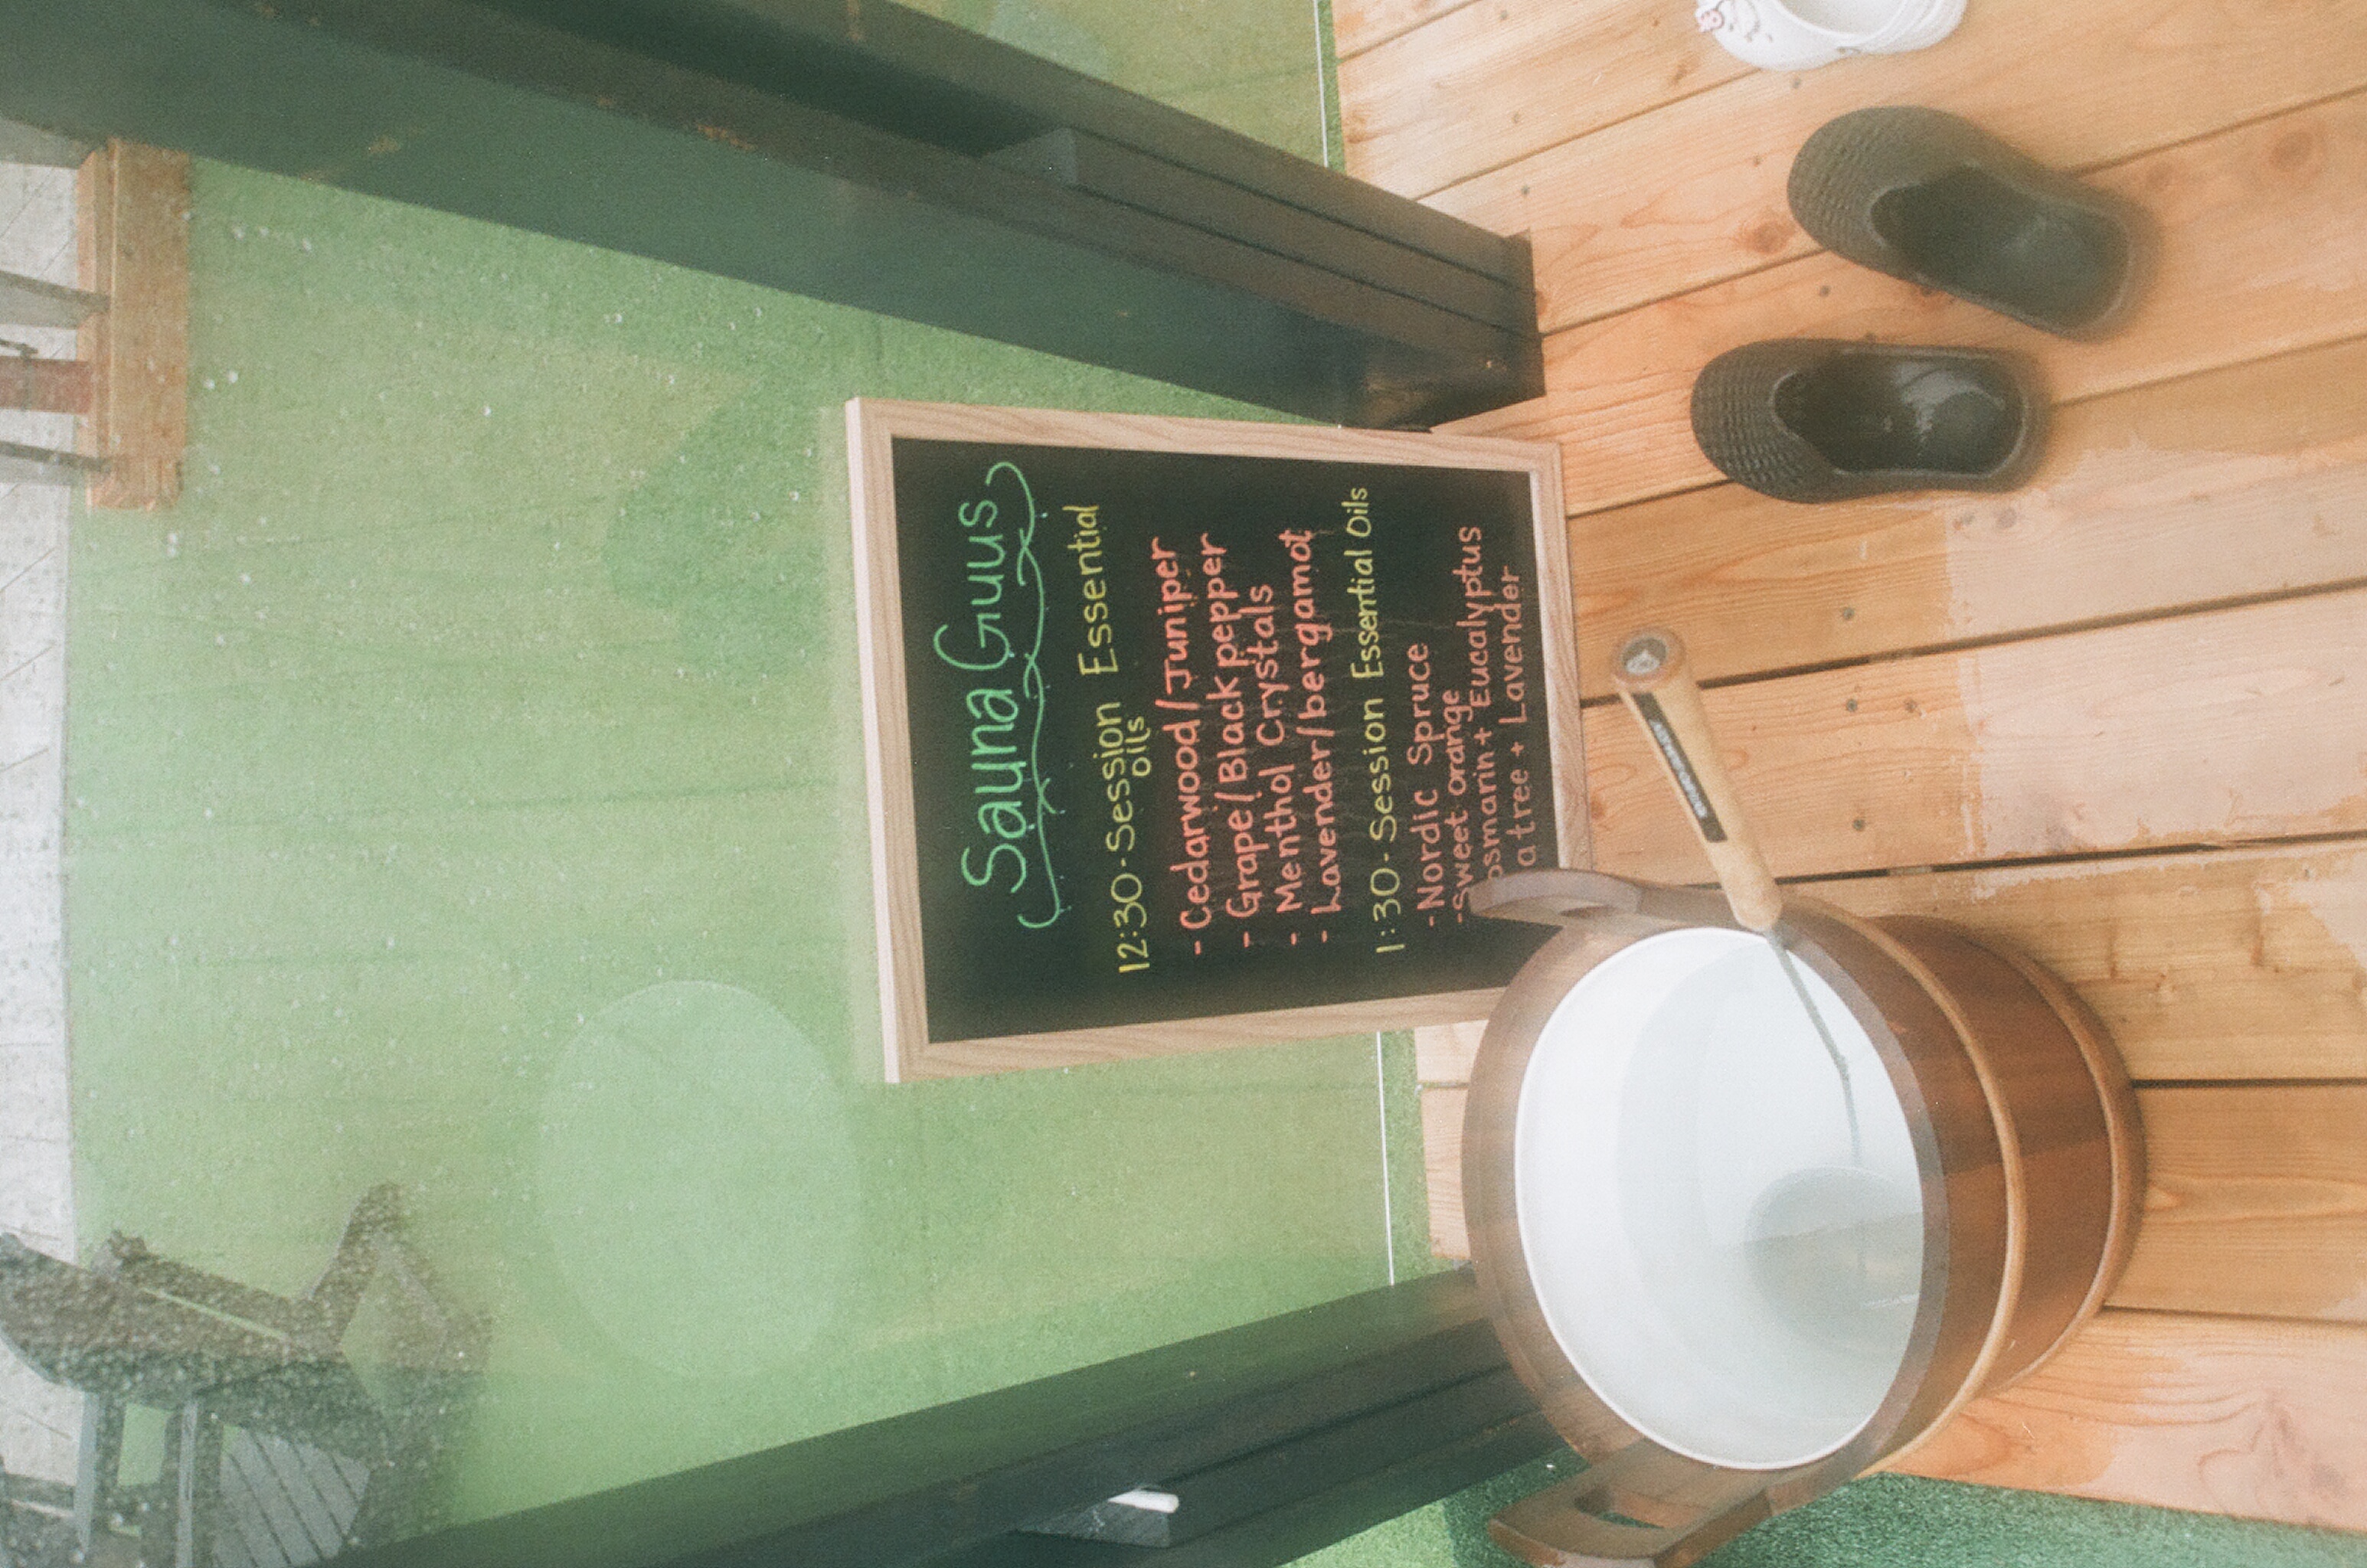 Sauna Guus
12:30 - Session Essential
oils
- Cedarwood/Juniper
- Grape/Black pepper
- Menthol Crystals
- Lavender/bergamot
1:30 - Session Essential Oils
- Nordic Spruce
- Sweet orange
osmarin + Eucalyptus
a tree + Lavender